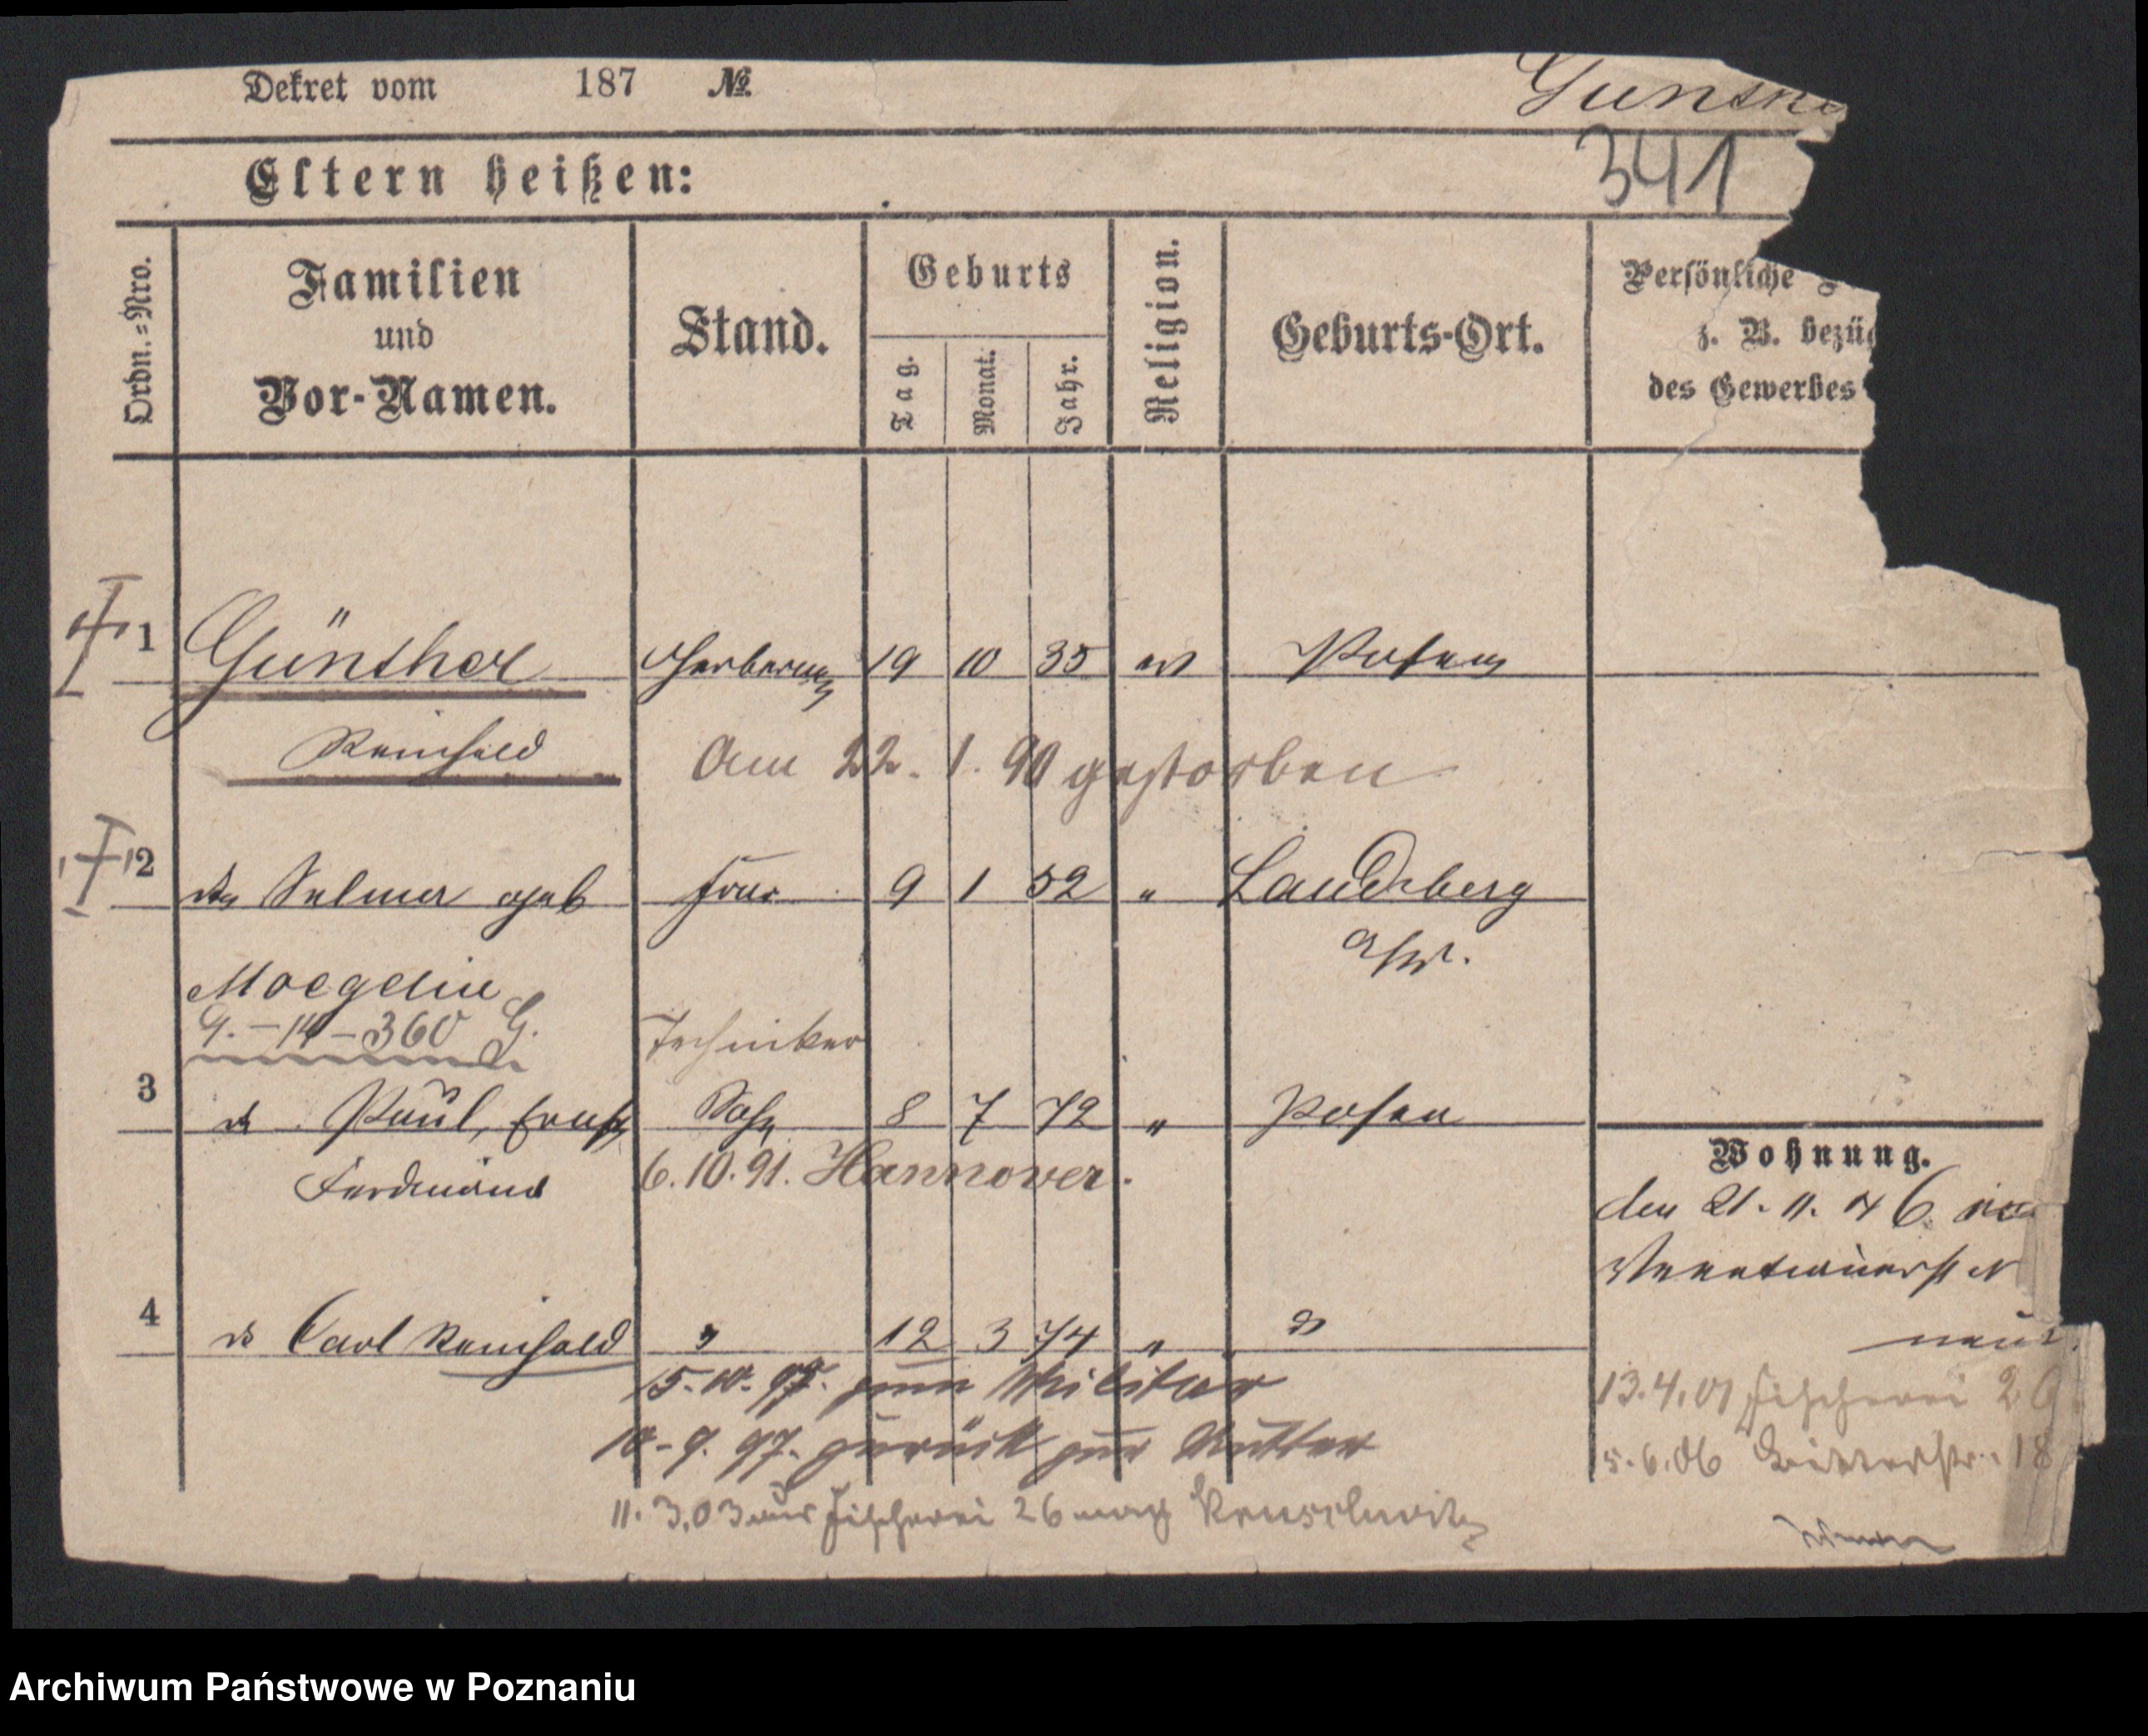 Dekret vom 187 №
Günthe
341
Eltern heißen:
Ordn.-Nro.
Familien
und
Vor-Namen.
Stand.
Geburts
Tag.
Monat.
Jahr.
Religion.
Geburts-Ort.
Persönliche
z. B. bezüg
des Gewerbes
1 Günther 19 10 35 ev Posen
Reinhold Am 22. 1. 90 gestorben
2 Selma geb Frau 9 1 52 " Landsberg
Moegelin
9.-14-360 G.
Techniker
3 do Paul, Ernst Sohn 8 7 72 " Posen
Ferdinand 6.10.91. Hannover.
Wohnung.
den 21. 11.
4 do Carl Reinhold " 12 3 74 " do
neu
15.10.95. zum Militär
13.4.01 Fischerei 26
10.9.97. zurück zur Mutter
5.6.06 Ritterstr. 18
11.3.03 aus Fischerei 26 nach
Archiwum Państwowe w Poznaniu